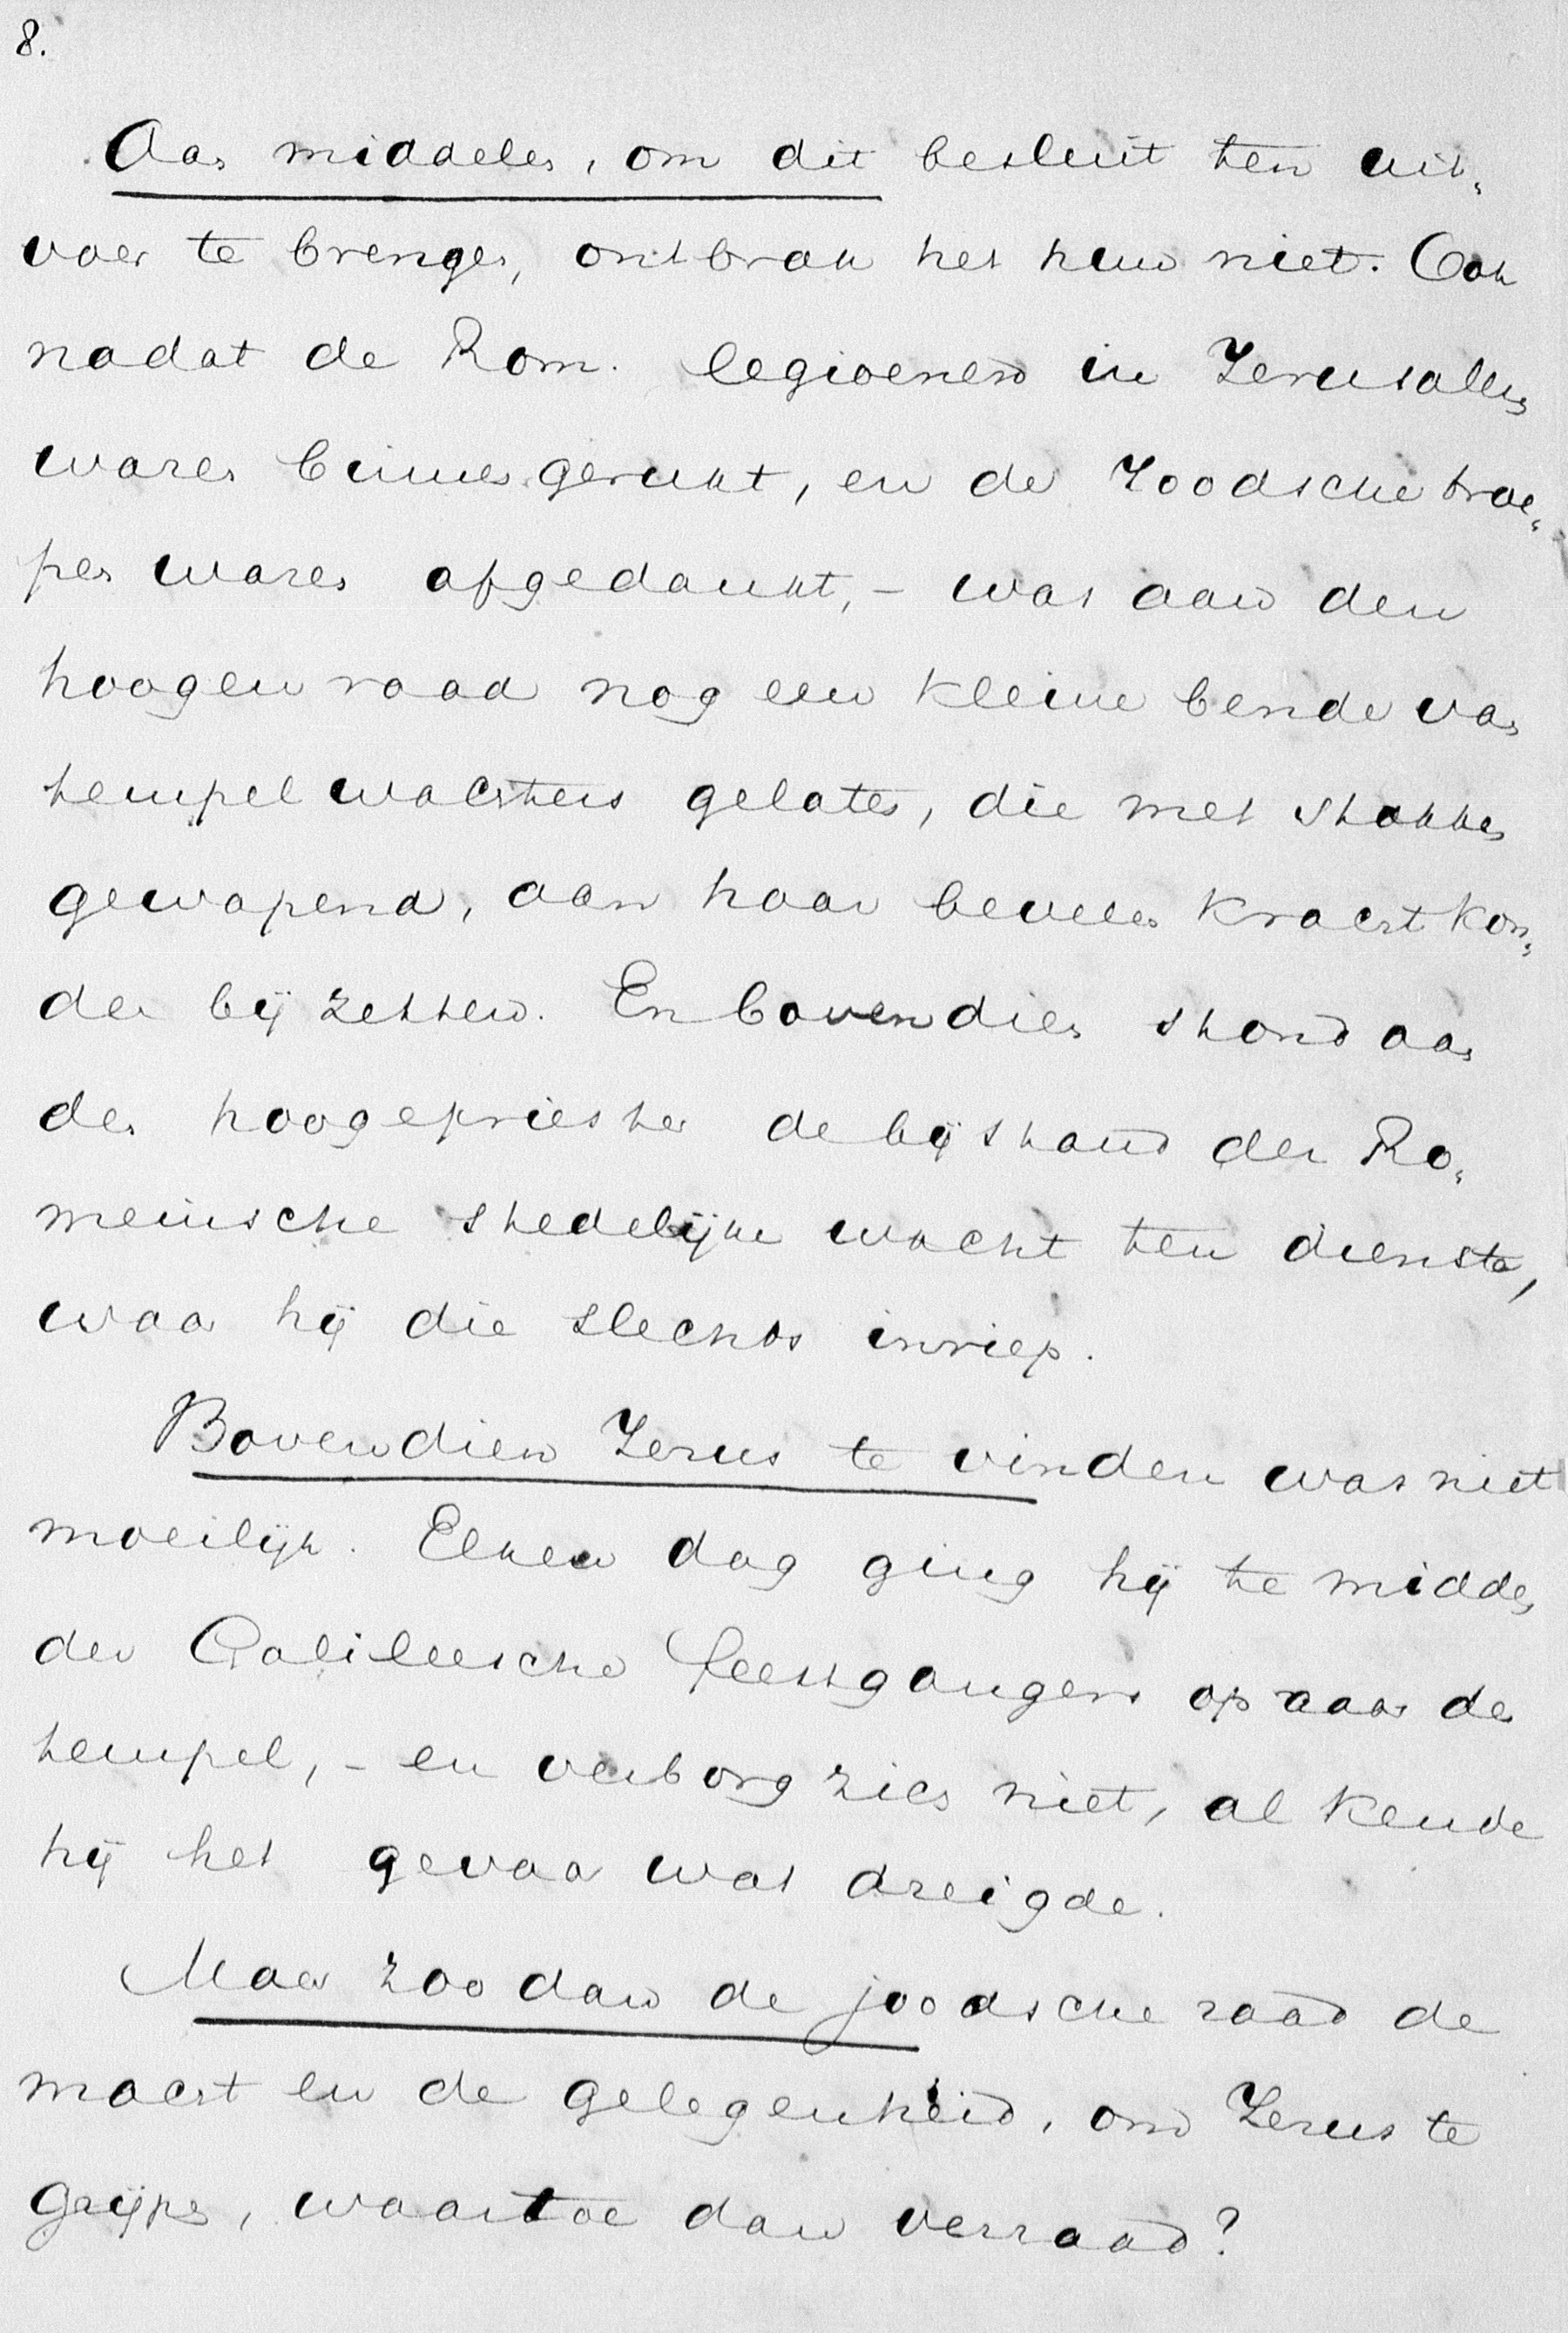 8.
Aan middelen, om dit besluit ten uit-
voer te brengen, ontbrak het hun niet. Ook
nadat de Rom. legioenen in Jerusalem
waren binnengerukt, en de Joodsche troe-
pen waren afgedankt, – was aan den
hoogen raad nog een kleine bende van
tempelwachters gelaten, die met stokken
gewapend, aan haar bevelen kracht kon-
den bijzetten. En bovendien stond aan
den hoogepriester de bijstand der Ro-
meinsche stedelijke wacht ten dienste,
waar hij die slechts inriep.
Bovendien Jezus te vinden was niet
moeilijk. Elken dag ging hij te midden
der Galileesche feestgangers op naar den
tempel, – en verborg zich niet, al kende
hij het gevaar wat dreigde.
Maar zoo dan de joodsche raad de
macht en de gelegenheid, om Jezus te
grijpen, waartoe dan verraad?